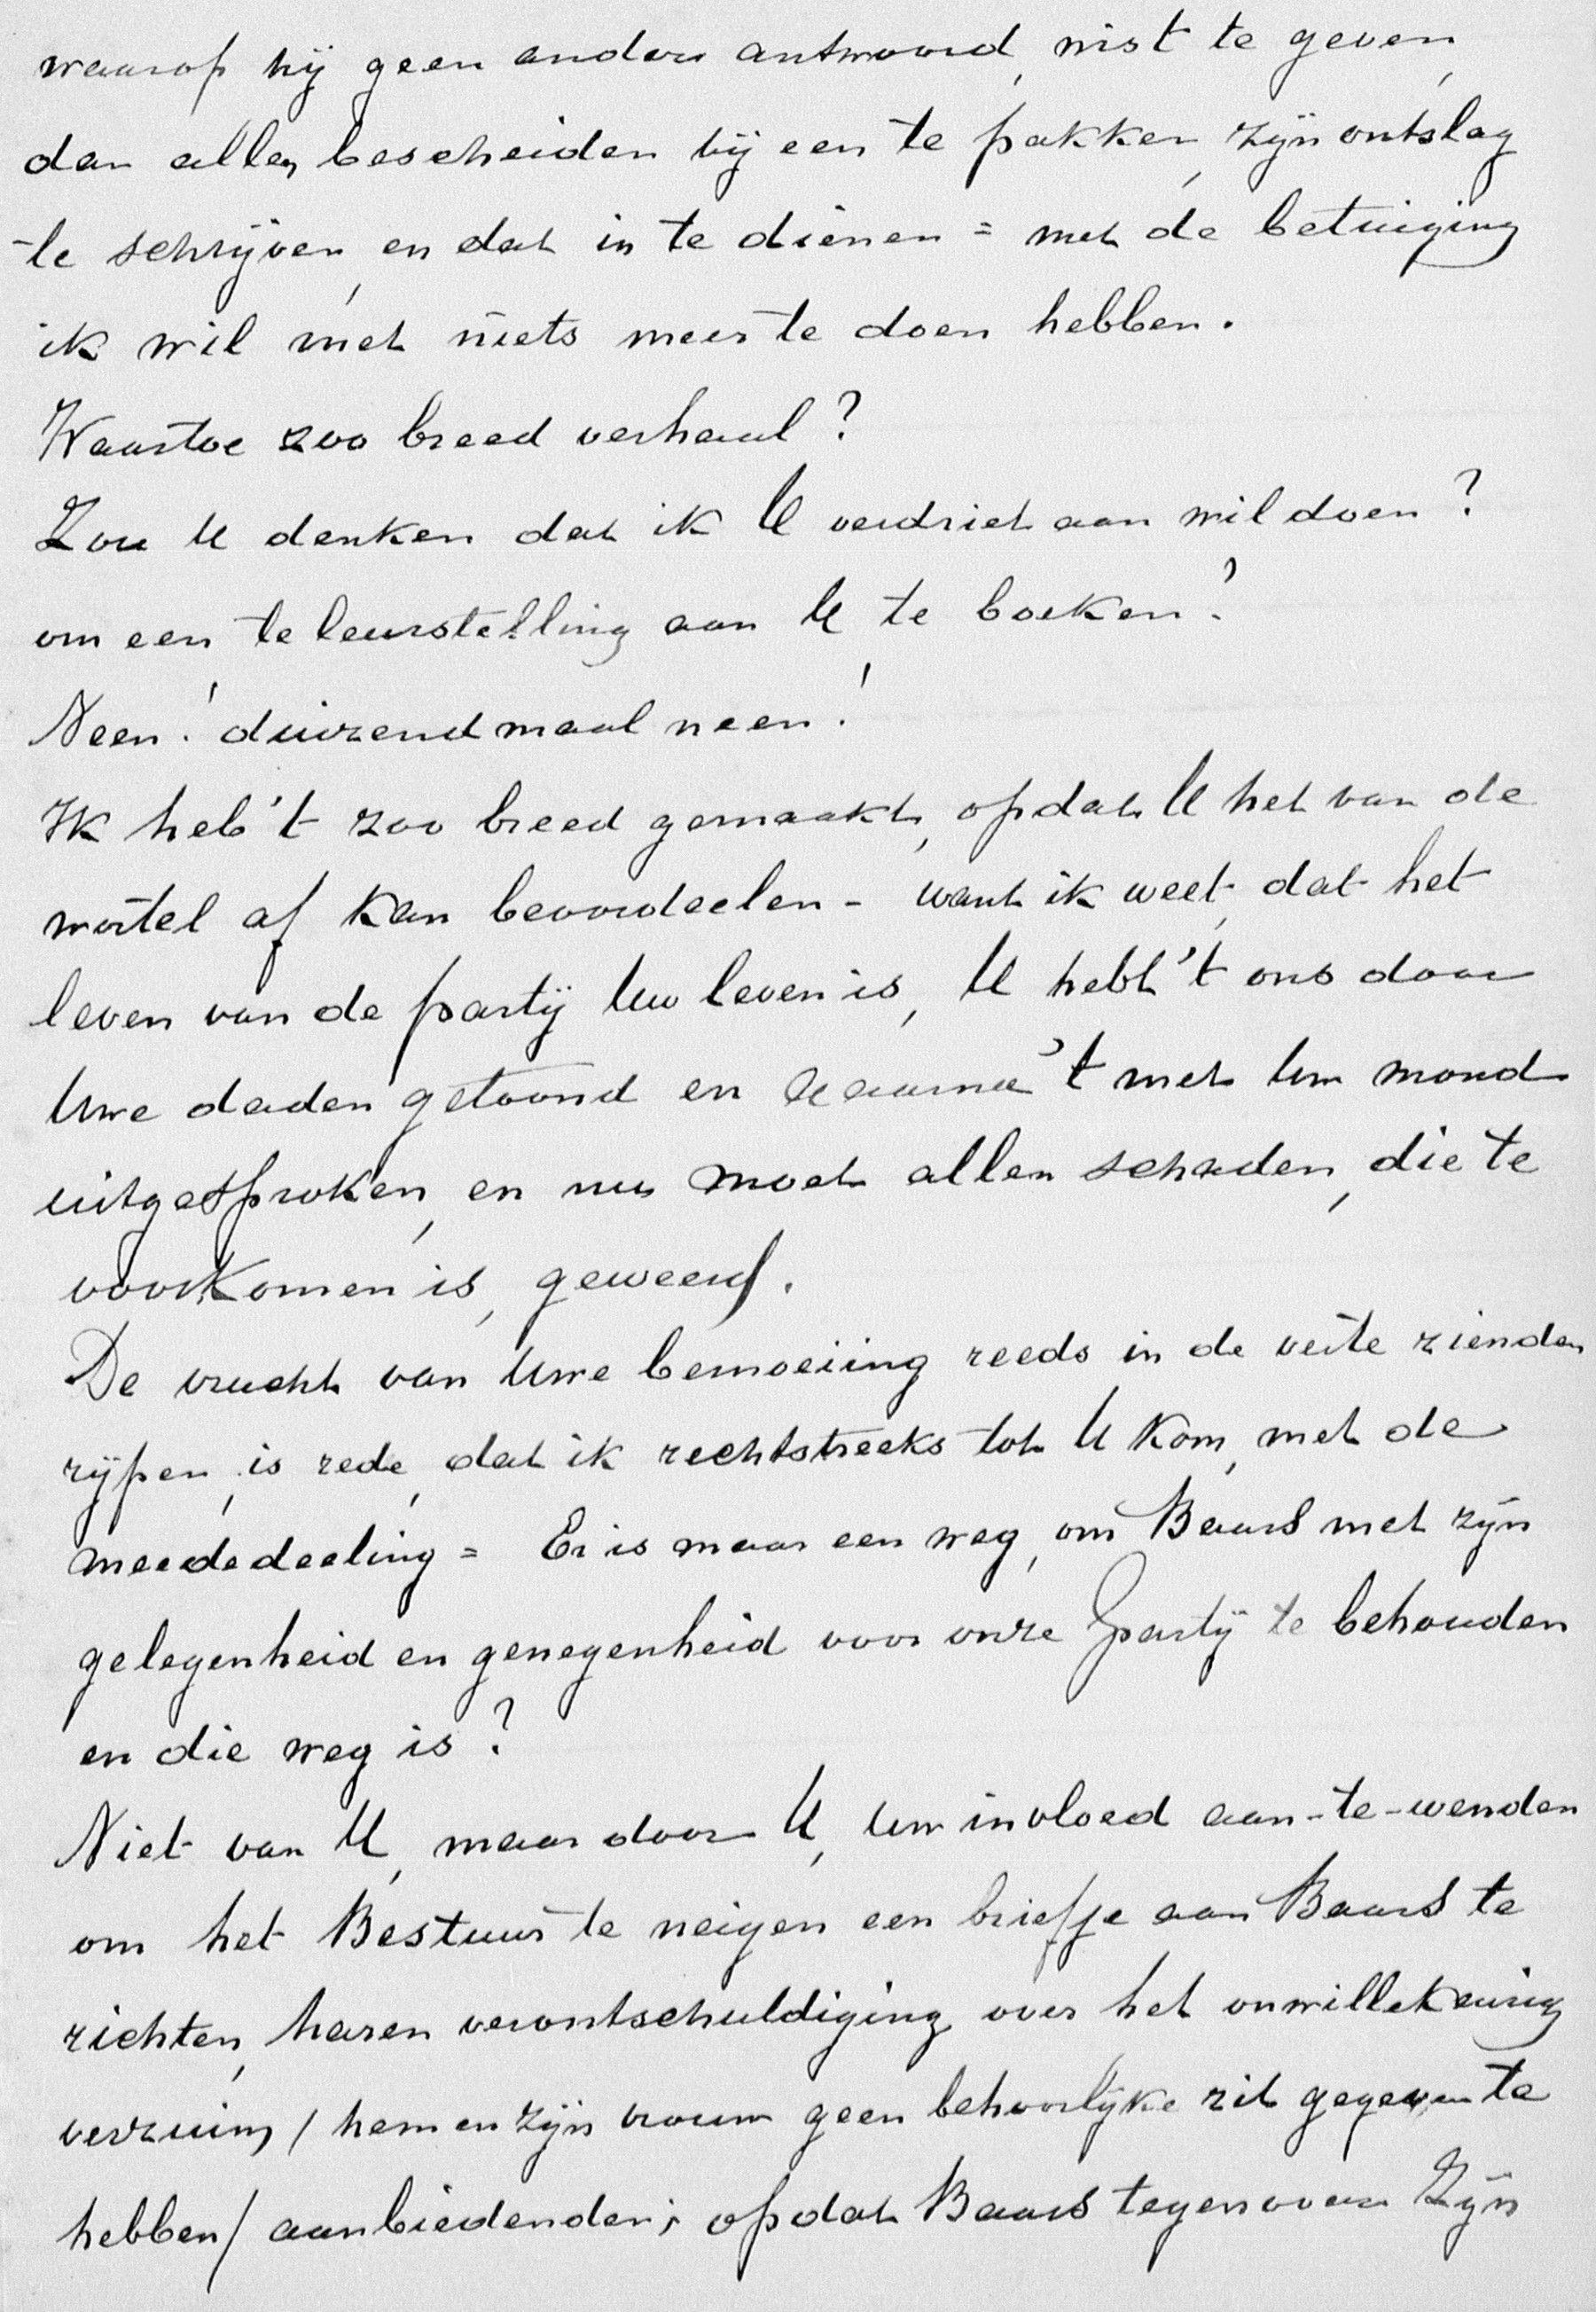 waarop hij geen ander antwoord, wist te geven,
dan alle bescheiden bij een te pakken, zijn ontslag
te schrijven, en dat in te dienen = met de betuiging
ik wil met niets meer te doen hebben.
Waartoe zoo breed verhaal?
Zou U denken dat ik U verdriet aan wil doen?
om een teleurstelling aan U te boeken?
Neen! duizendmaal neen!
Ik heb 't zoo breed gemaakt, opdat U het van de
wortel af kan beoordeelen - want ik weet, dat het
leven van de partij Uw leven is, U hebt 't ons door
Uwe daden getoond en daarna 't met Uw mond
uitgesproken, en nu moet allen schaden, die te
voorkomen is, geweerd.
De vrucht van Uwe bemoeiing reeds in de verte zienden
rijpen, is rede, dat ik rechtstreeks tot U kom, met de
meededeeling = Er is maar een weg, om Baars met zijn
gelegenheid en genegenheid voor onze partij te behouden
en die weg is?
Niet van U, maar door U, Uw invloed aan-te-wenden
om het Bestuur te neigen een briefje aan Baars te
richten, haren verontschuldiging over het onwillekeurig
verzuim / hem en zijn vrouw geen behoorlijke zit gegeven te
hebben / aanbiedenden; opdat Baars tegenover Zijn